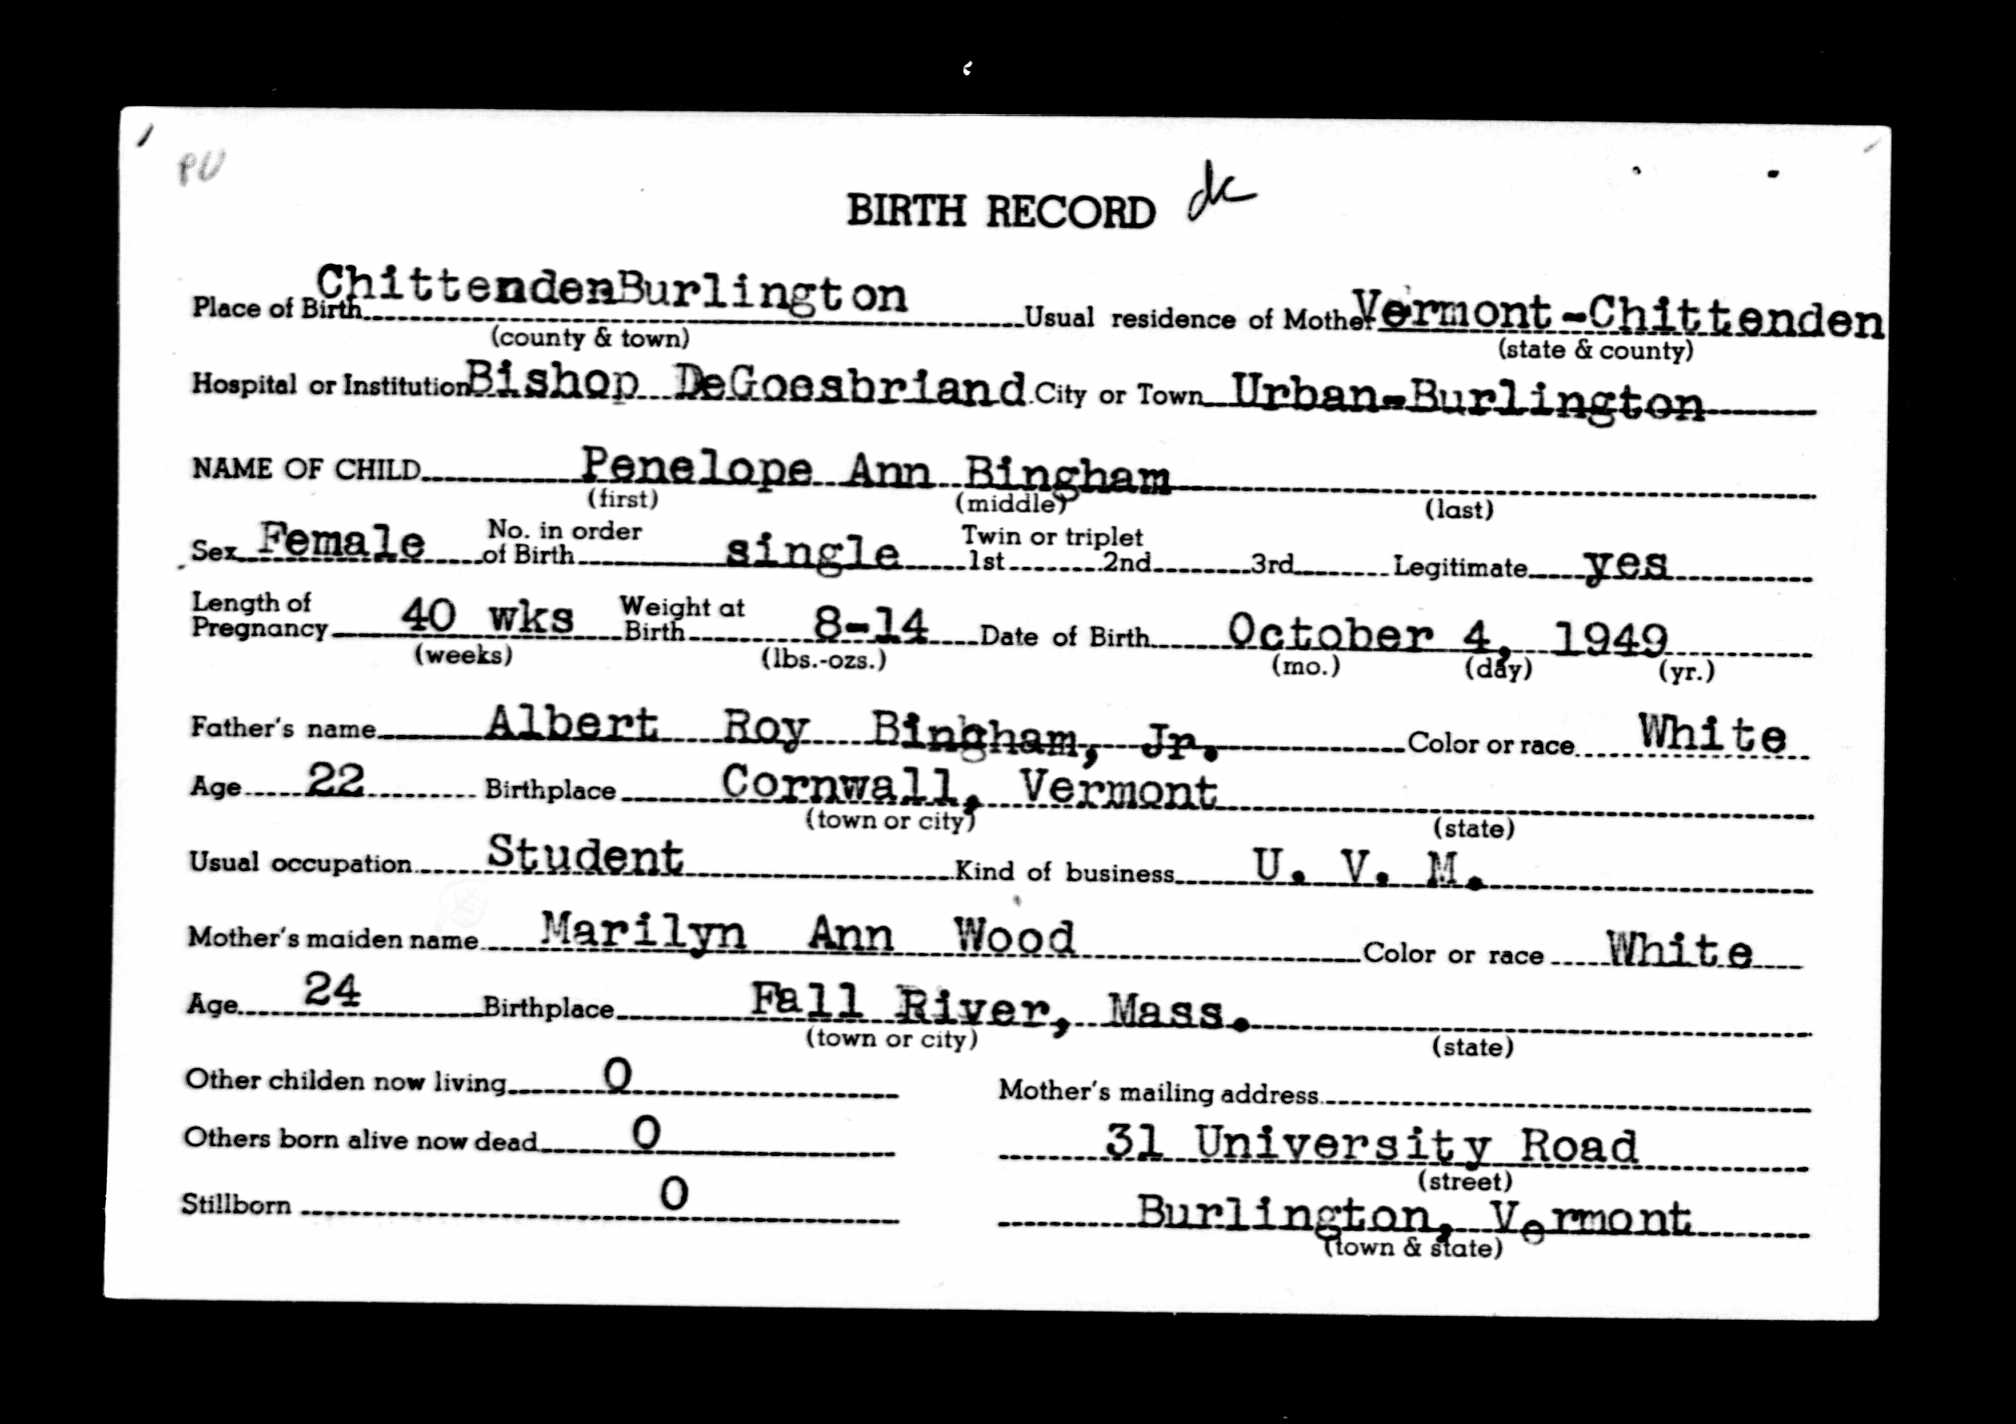 PU
BIRTH RECORD dc
Place of Birth ChittendenBurlington Usual residence of Mother Vermont-Chittenden
(county & town) (state & county)
Hospital or Institution Bishop DeGoesbriand City or Town Urban-Burlington
NAME OF CHILD Penelope Ann Bingham
(first) (middle) (last)
Sex Female No. in order of Birth single Twin or triplet 1st 2nd 3rd Legitimate yes
Length of Pregnancy 40 wks Weight at Birth 8-14 Date of Birth October 4, 1949
(weeks) (lbs.-ozs.) (mo.) (day) (yr.)
Father's name Albert Roy Bingham, Jr. Color or race White
Age 22 Birthplace Cornwall, Vermont
(town or city) (state)
Usual occupation Student Kind of business U. V. M.
Mother's maiden name Marilyn Ann Wood Color or race White
Age 24 Birthplace Fall River, Mass.
(town or city) (state)
Other childen now living 0 Mother's mailing address
Others born alive now dead 0 31 University Road
(street)
Stillborn 0 Burlington, Vermont
(town & state)